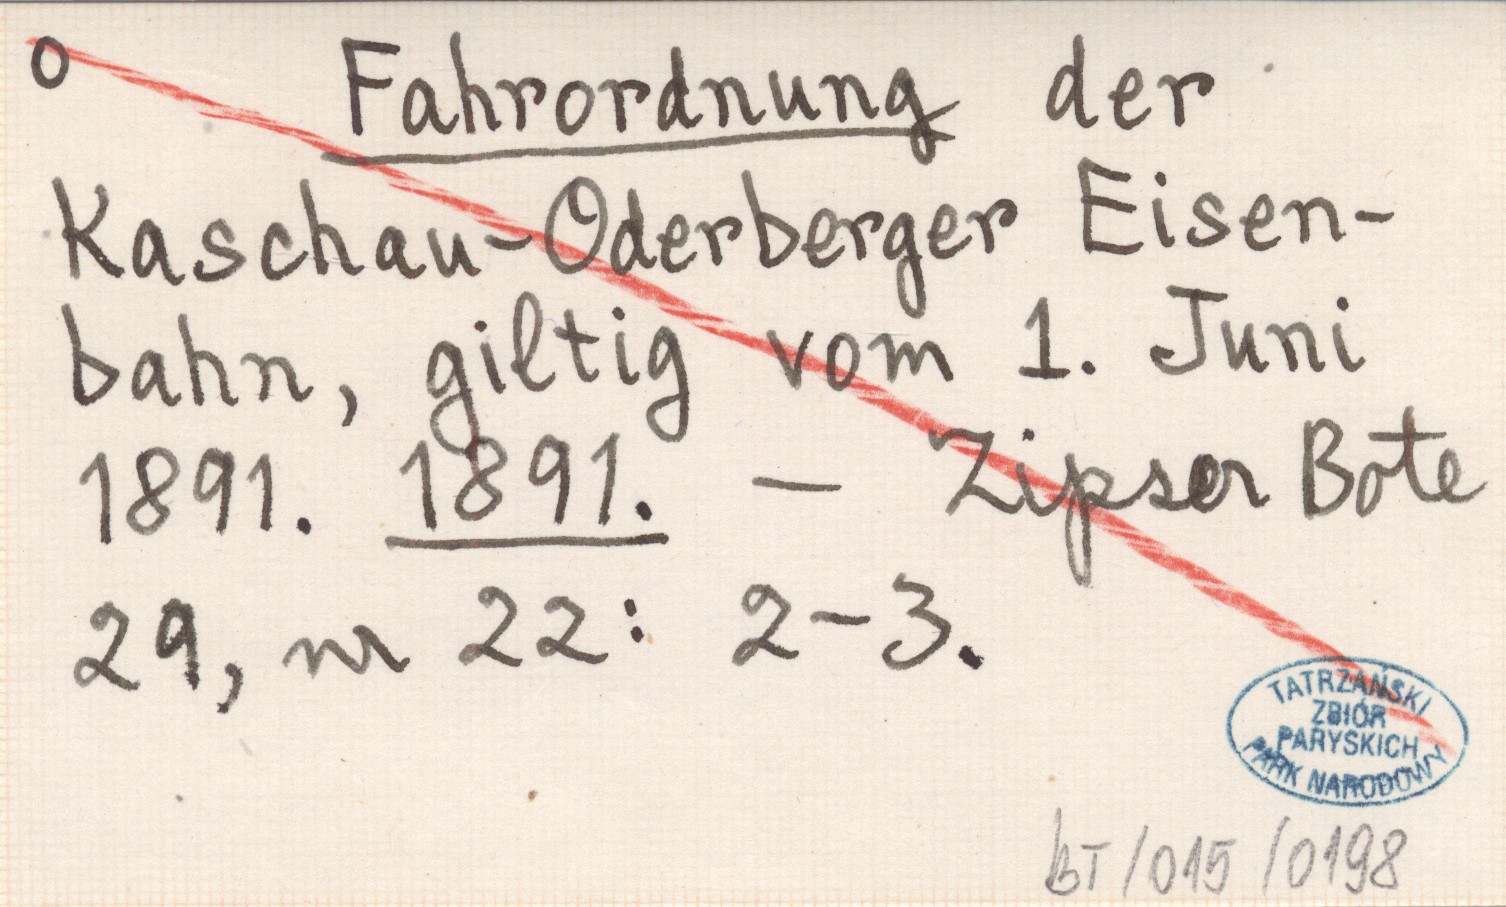 o Fahrordnung der
Kaschau-Oderberger Eisen-
bahn, giltig vom 1. Juni
1891. 1891. — Zipser Bote
29, nr 22: 2-3.
TATRZAŃSKI
ZBIÓR
PARYSKICH
PARK NARODOWY
BT/015/0198